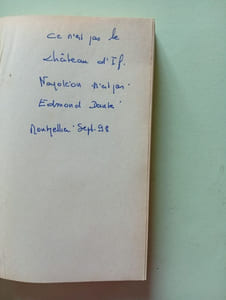 Ce n'est pas le
château d'If.
Napoléon n'est pas
Edmond Dantè
Montpellier Sept. 98